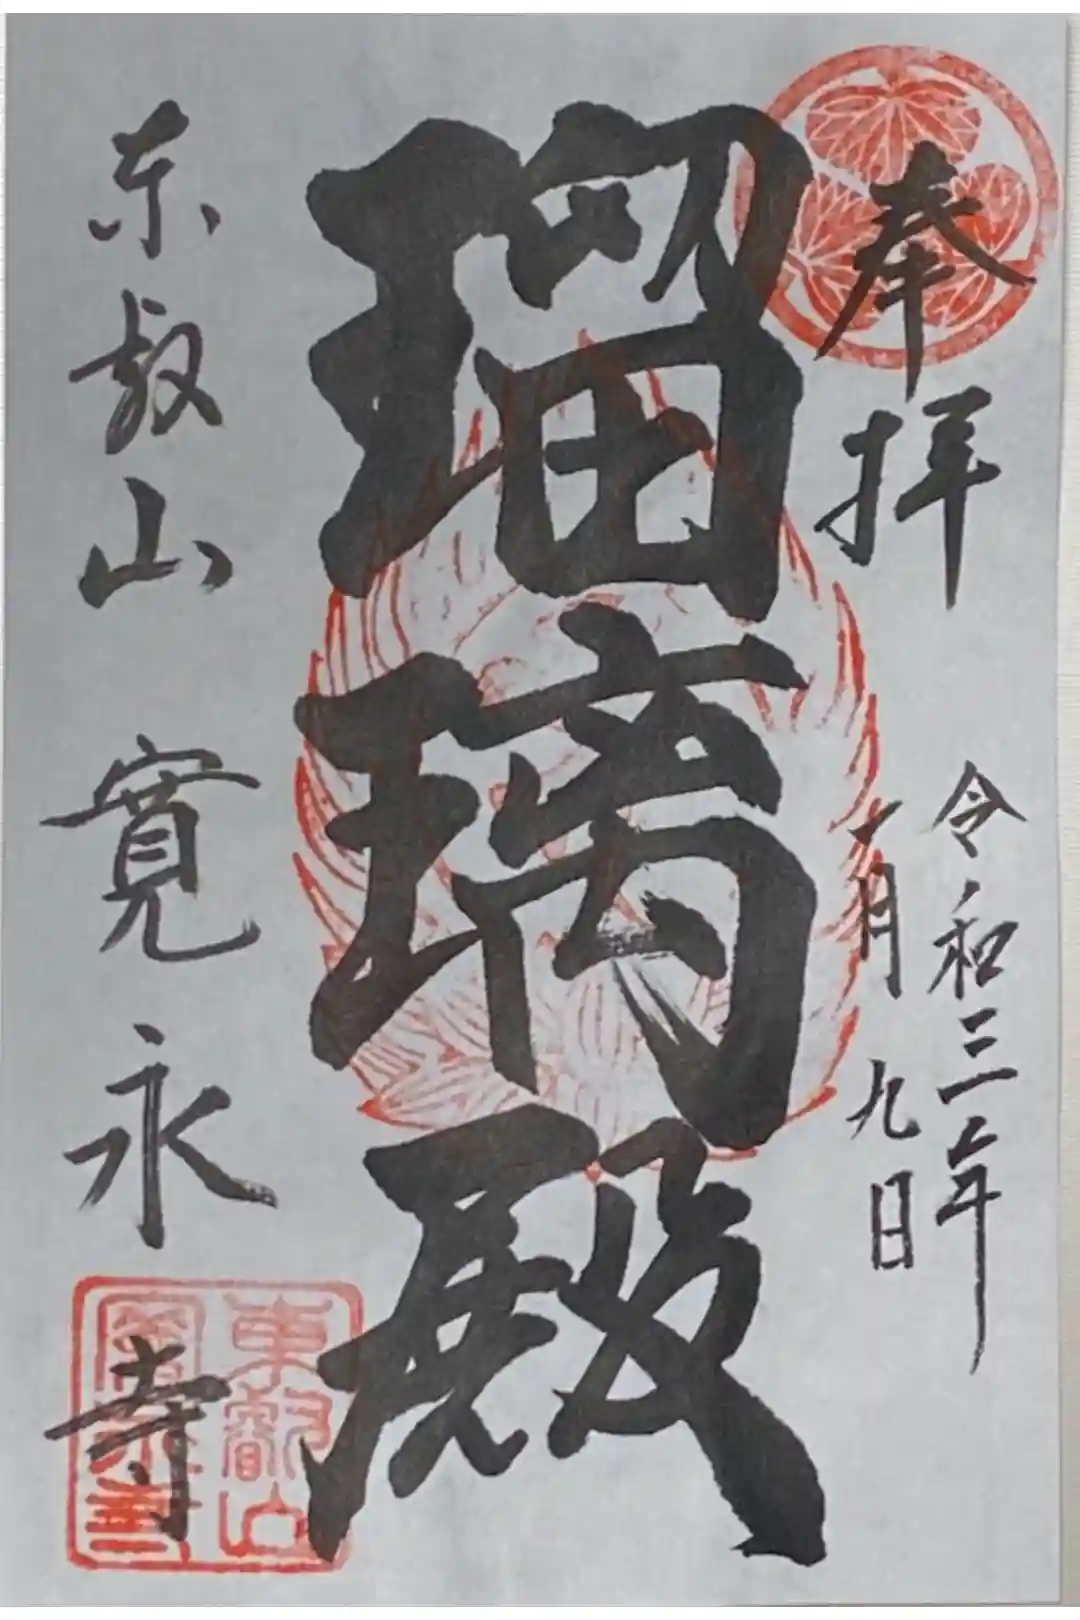 奉拝
令和三年
十月九日
瑠璃殿
東叡山 寛永寺
東叡山
寛永寺